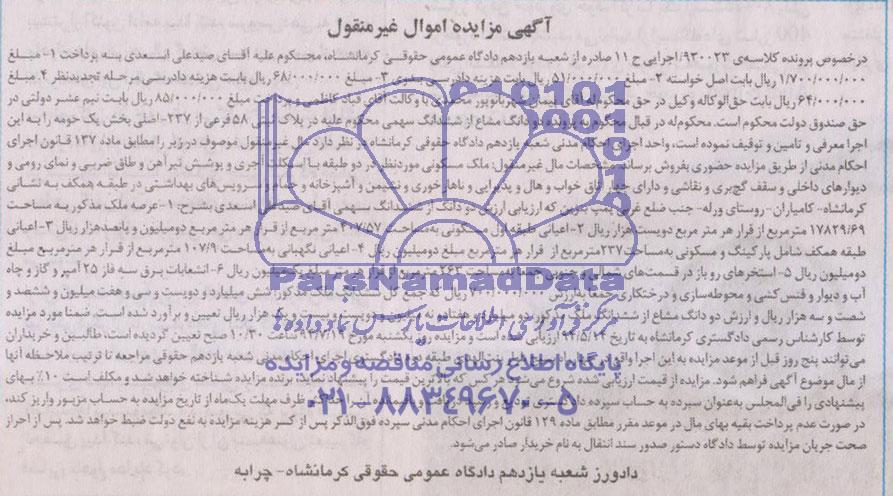 آگهی مزایده اموال غیرمنقول
درخصوص پرونده کلاسه‌ی ۹۳۰۰۲۳/اجرایی ح ۱۱ صادره از شعبه یازدهم دادگاه عمومی حقوقی کرمانشاه، محکوم علیه آقای صیدعلی اسعدی بنه پرداخت ۱- مبلغ
۱/۷۰۰/۰۰۰/۰۰۰ ریال بابت اصل خواسته ۲- مبلغ ۵۱/۰۰۰/۰۰۰ ریال بابت هزینه دادرسی بدوی ۳- مبلغ ۶۸/۰۰۰/۰۰۰ ریال بابت هزینه دادرسی مرحله تجدیدنظر ۴- مبلغ
۶۴/۰۰۰/۰۰۰ ریال بابت حق‌الوکاله وکیل در حق محکوم‌له آقای پیمان شهربانوپور محمدی با وکالت آقای قباد کاظمی و پرداخت مبلغ ۸۵/۰۰۰/۰۰۰ ریال بابت نیم عشر دولتی در
حق صندوق دولت محکوم است. محکوم‌له در قبال محکوم به پرونده دو دانگ مشاع از ششدانگ سهمی محکوم علیه در پلاک ثبتی ۵۸ فرعی از ۲۳۷- اصلی بخش یک حومه را به این
اجرا معرفی و تامین و توقیف نموده است، واحد اجرای احکام مدنی شعبه یازدهم دادگاه حقوقی کرمانشاه در نظر دارد مال غیرمنقول موصوف در زیر را مطابق ماده ۱۳۷ قانون اجرای
احکام مدنی از طریق مزایده حضوری بفروش برساند مشخصات مال غیرمنقول: ملک مسکونی موردنظر در دو طبقه با اسکلت آجری و پوشش تیرآهن و طاق ضربی و نمای رومی و
دیوارهای داخلی و سقف گچ‌بری و نقاشی و دارای چهار اتاق خواب و هال و پذیرایی و ناهارخوری و نشیمن و آشپزخانه و حمام و سرویس‌های بهداشتی در طبقه همکف به نشانی
کرمانشاه- کامیاران- روستای ورله- جنب ضلع غربی پمپ بنزین که ارزیابی ارزش دو دانگ از ششدانگ سهمی آقای صیدعلی اسعدی بشرح: ۱- عرصه ملک مذکور به مساحت
۱۷۸۲۹/۶۹ مترمربع از قرار هر متر مربع دویست هزار ریال ۲- اعیانی طبقه اول مسکونی به‌مساحت ۲۰۷/۵۷ متر مربع از قرار هر متر مربع دومیلیون و پانصدهزار ریال ۳- اعیانی
طبقه همکف شامل پارکینگ و مسکونی به‌مساحت ۲۳۷ مترمربع از قرار هر متر مربع مبلغ دومیلیون ریال ۴- اعیانی نگهبانی به‌مساحت ۱۰۷/۹ مترمربع از قرار هر مترمربع مبلغ
دومیلیون ریال ۵- استخرهای روباز در قسمت‌های شمالی و جنوبی جمعا به مساحت ۲۶۲ مترمربع از قرار هر متر مبلغ یک میلیون ریال ۶- انشعابات برق سه فاز ۲۵ آمپر و گاز و چاه
آب و دیوار و فنس کشی و محوطه‌سازی و درختکاری جمعا به ارزش ۷۰۰/۰۰۰/۰۰۰ ریال که جمع کل ششدانگ ملک مذکور: شش میلیارد و دویست و سی و هفت میلیون و ششصد و
شصت و سه هزار ریال و ارزش دو دانگ مشاع از ششدانگ ملک مذکور دو میلیارد و هفتاد و نه میلیون و دویست و بیست و یک هزار ریال تعیین و برآورد شده است. ضمنا مورد مزایده
توسط کارشناس رسمی دادگستری کرمانشاه به تاریخ ۹۴/۵/۱۴ ارزیابی شده است و مزایده روز یکشنبه مورخ ۹۴/۷/۱۹ ساعت ۱۰/۳۰ صبح تعیین گردیده است، طالبین و خریداران
می‌توانند پنج روز قبل از موعد مزایده به این اجرا واقع در طبقه دو دادگستری اجرای احکام مدنی شعبه یازدهم حقوقی مراجعه تا ترتیب ملاحظه آنها
از مال موضوع آگهی فراهم شود. مزایده از قیمت ارزیابی شده شروع می‌شود هر کس که بالاترین قیمت را پیشنهاد نماید، برنده مزایده شناخته خواهد شد و مکلف است ۱۰٪ بهای
پیشنهادی را فی‌المجلس به‌عنوان سپرده به حساب سپرده دادگستری تودیع و ظرف مهلت یک‌ماه از تاریخ مزایده به حساب مزبور واریز کند،
در صورت عدم پرداخت بقیه بهای مال در موعد مقرر مطابق ماده ۱۲۹ قانون اجرای احکام مدنی سپرده فوق‌الذکر پس از کسر هزینه مزایده به نفع دولت ضبط خواهد شد. پس از احراز
صحت جریان مزایده توسط دادگاه دستور صدور سند انتقال به نام خریدار صادر می‌شود.
دادورز شعبه یازدهم دادگاه عمومی حقوقی کرمانشاه- چرابه
ParsNamadData
مرکز فرآوری اطلاعات پارس نماد داده‌ها
پایگاه اطلاع رسانی مناقصه و مزایده
۰۲۱-۸۸۳۴۹۶۷۰-۵